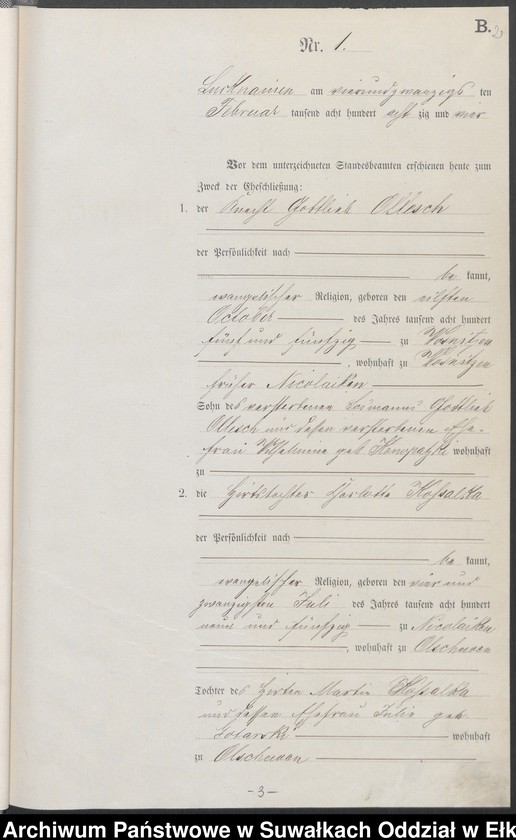 B.
Nr. 1.
am vierundzwanzigs ten
Februar tausend acht hundert acht zig und vier
Vor dem unterzeichneten Standesbeamten erschienen heute zum
Zweck der Eheschließung:
1. der Knecht Gottlieb Ollesch
der Persönlichkeit nach
be kannt,
evangelischer Religion, geboren den elften
October des Jahres tausend acht hundert
fünf und fünfzig zu
, wohnhaft zu
früher Nicolaiken
Sohn des verstorbenen Losmanns Gottlieb
Ollesch und dessen verstorbenen Ehe-
frau Wilhelmine geb. wohnhaft
zu
2. die Hirttochter Charlotte Kossalka
der Persönlichkeit nach
be kannt,
evangelischer Religion, geboren den vier und
zwanzigsten Juli des Jahres tausend acht hundert
neun und fünfzig zu Nicolaiken
, wohnhaft zu Olschewen
Tochter des Hirten Martin Kossalka
und dessen Ehefrau Julie geb.
wohnhaft
zu Olschewen
-3-
Archiwum Państwowe w Suwałkach Oddział w Ełk